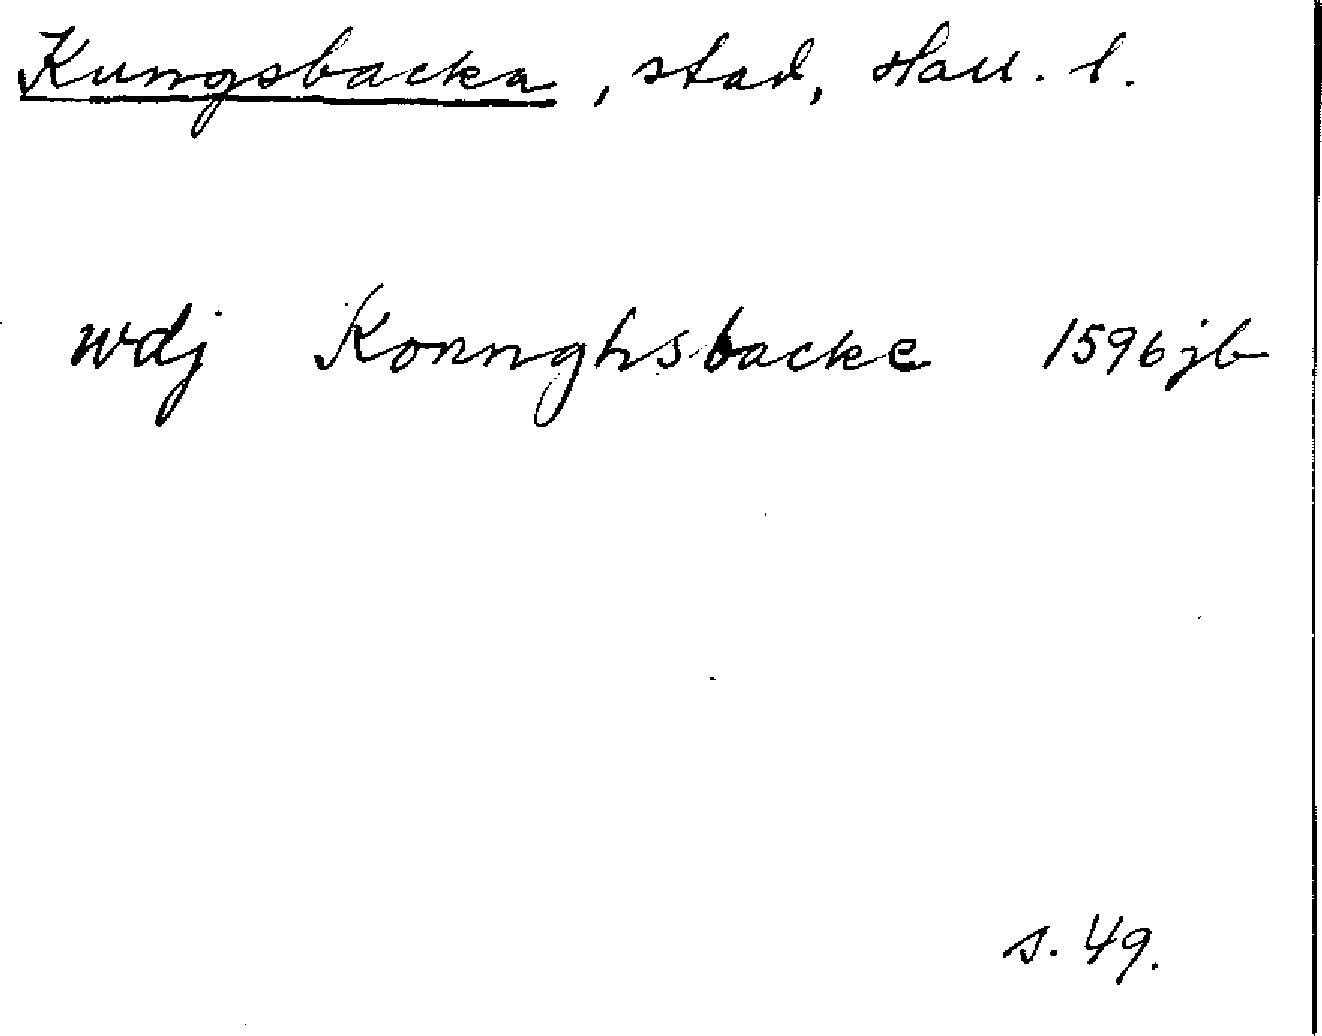 Kungsbacka, stad, Hall. l.
wdj Konnghsbacke 1596 jb
s. 49.